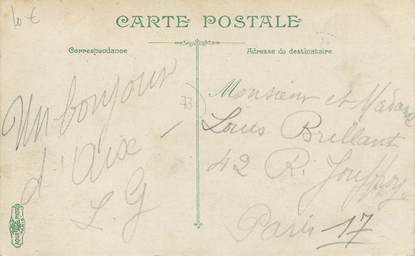 10 €
CARTE POSTALE
Correspondance
Adresse du destinataire
73
Un bonjour
d'Aix —
L G
Monsieur et Madame
Louis Brillant
42 R. Jouffroy
Paris 17